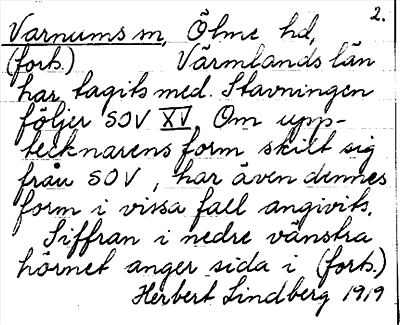 2.
Varnums sn, Ölme hd,
(forts.) Värmlands län
har tagits med. Stavningen
följer SOV XV. Om upp-
tecknarens form skilt sig
från SOV, har även dennes
form i vissa fall angivits.
Siffran i nedre vänstra
hörnet anger sida i (forts.)
Herbert Lindberg 1919